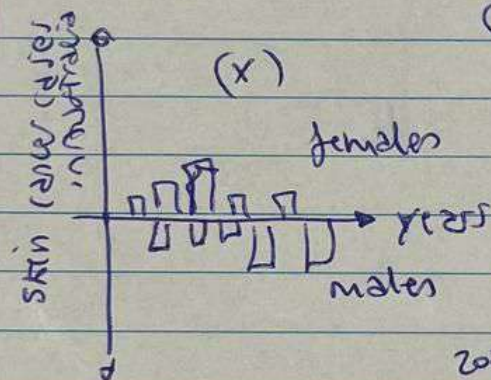 (X)
skin cancer cases
in Australia
females
years
males
20